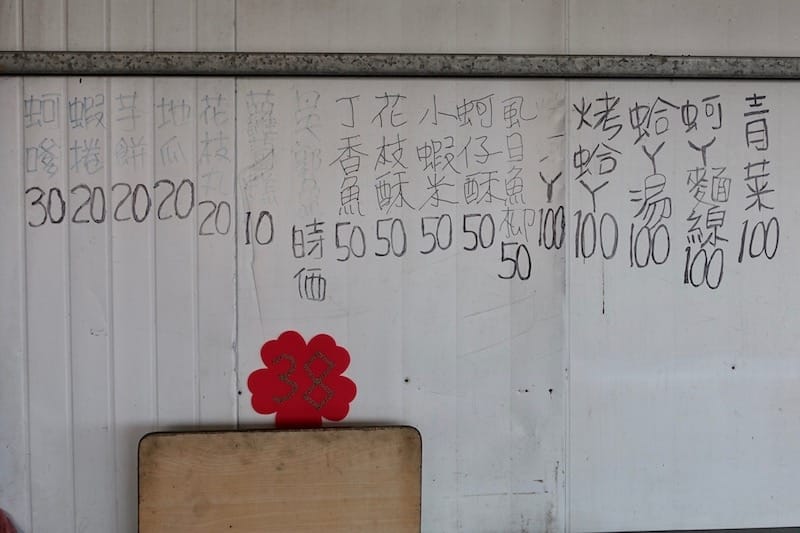 青菜100
蚵ㄚ麵線100
蛤ㄚ湯100
烤蛤ㄚ100
ㄚ100
虱目魚柳50
蚵仔酥50
小蝦米50
花枝酥50
丁香魚50
時価
蘿蔔糕10
花枝丸20
地瓜20
芋餅20
蝦捲20
蚵嗲30
38